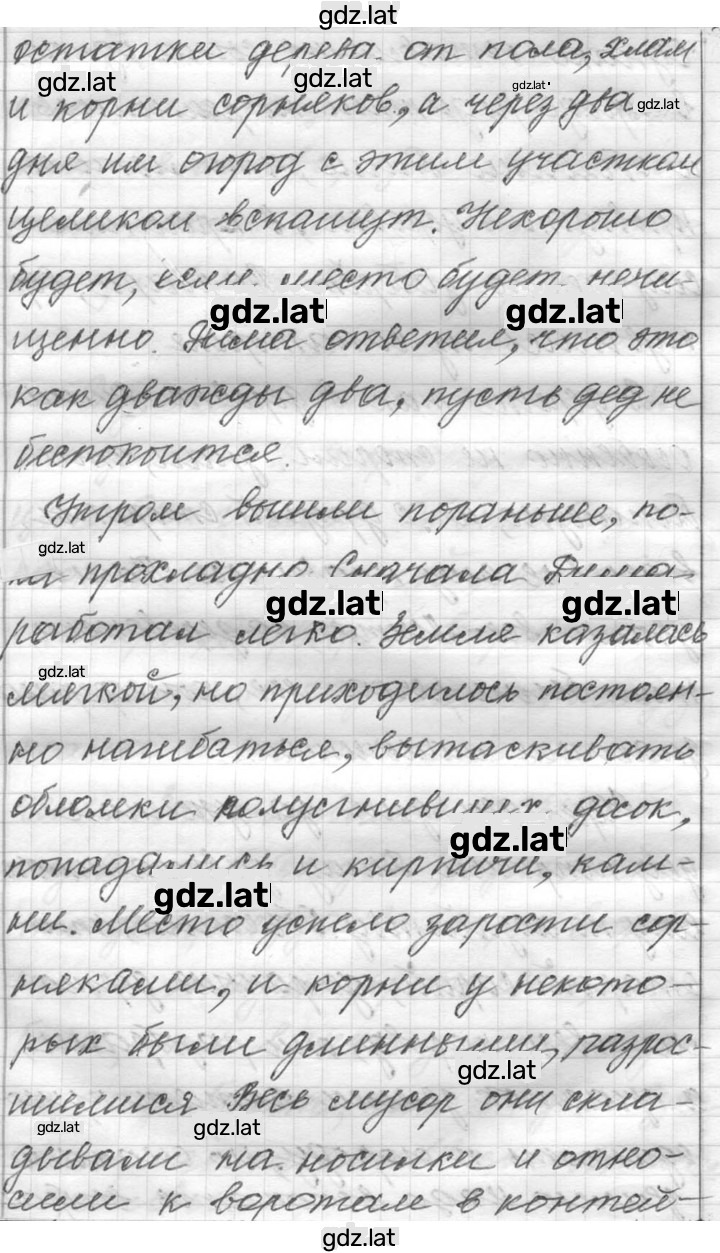 gdz.lat
остатки дерева от пола, хлам
gdz.lat gdz.lat gdz.lat
и корни сорняков, а через два gdz.lat
дня им огород с этим участком
целиком вспашут. Нехорошо
будет, если место будет нечи-
gdz.lat gdz.lat
щенно. Дима ответил, что это
как дважды два, пусть дед не
беспокоится.
Утром вышли пораньше, по-
gdz.lat
ка прохладно. Сначала Дима
gdz.lat gdz.lat
работал легко. Земля казалась
gdz.lat
мягкой, но приходилось постоян-
но нагибаться, вытаскивать
обломки полусгнивших досок,
gdz.lat
попадались и кирпичи, кам-
gdz.lat
ни. Место успело зарасти сор-
няками, и корни у некото-
рых были длинными, разрос-
gdz.lat
шимися. Весь мусор они скла-
gdz.lat gdz.lat
дывали на носилки и отно-
сили к воротам в контей-
gdz.lat